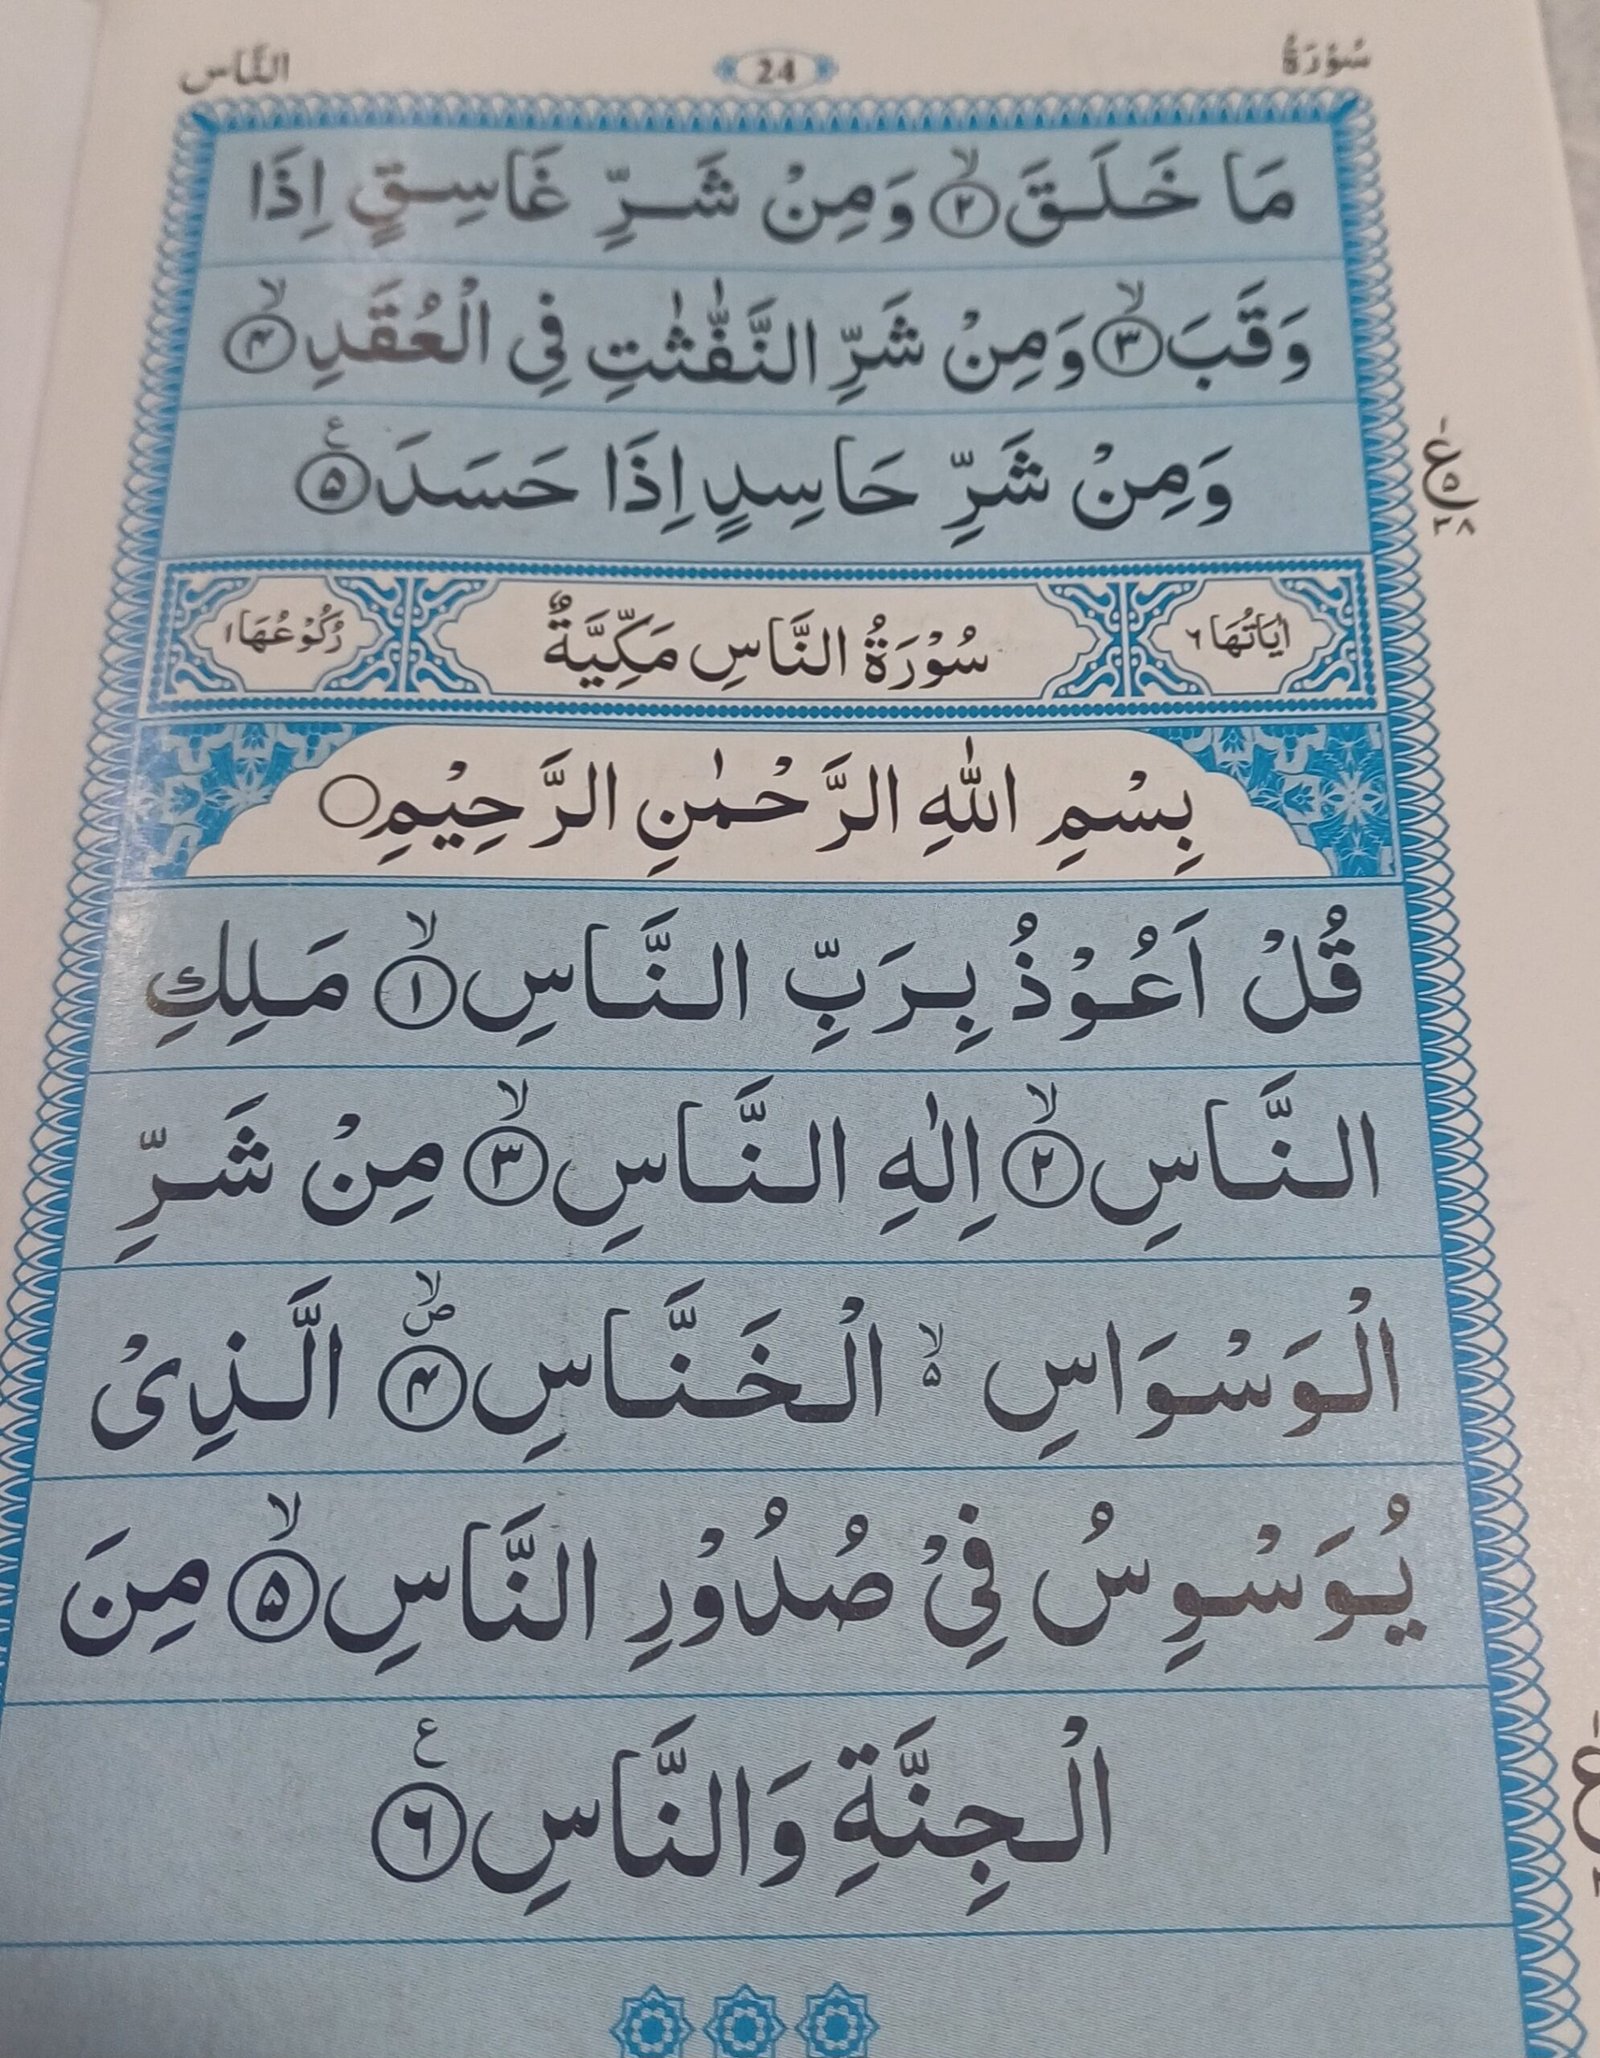 سُوْرَةُ 24 النَّاس
مَا خَلَقَ ۙ﴿۲﴾ وَمِنْ شَرِّ غَاسِقٍ اِذَا
وَقَبَ ۙ﴿۳﴾ وَمِنْ شَرِّ النَّفّٰثٰتِ فِي الْعُقَدِ ۙ﴿۴﴾
وَمِنْ شَرِّ حَاسِدٍ اِذَا حَسَدَ ﴿۵﴾ ع
ع ۵ ۳۸
اٰيَاتُهَا ۶ سُوْرَةُ النَّاسِ مَكِّيَّةٌ رُكُوْعُهَا ۱
بِسْمِ اللّٰهِ الرَّحْمٰنِ الرَّحِيْمِ ○
قُلْ اَعُوْذُ بِرَبِّ النَّاسِ ۙ﴿۱﴾ مَلِكِ
النَّاسِ ۙ﴿۲﴾ اِلٰهِ النَّاسِ ۙ﴿۳﴾ مِنْ شَرِّ
الْوَسْوَاسِ ۙ۵ الْخَنَّاسِ ۙص﴿۴﴾ الَّذِىْ
يُوَسْوِسُ فِىْ صُدُوْرِ النَّاسِ ۙ﴿۵﴾ مِنَ
الْجِنَّةِ وَالنَّاسِ ﴿۶﴾ ع